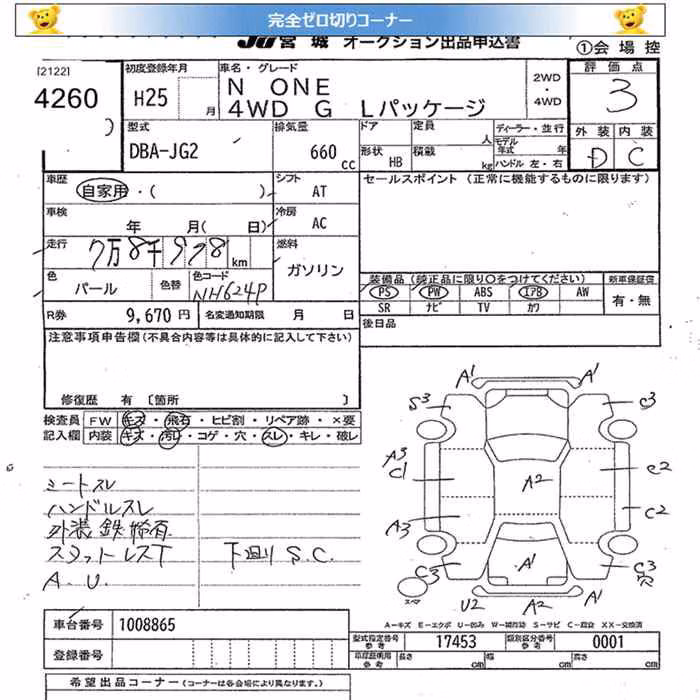 完全ゼロ切りコーナー
JU宮城 オークション出品申込書
①会場控
[2122]
4260
初度登録年月
H25 月
車名・グレード
N ONE
4WD G Lパッケージ
2WD
・
4WD
評価点
3
外装 内装
D C
型式
DBA-JG2
排気量
660 cc
ドア
形状 HB
定員 人
積載 kg
ディーラー・並行
モデル年式 年
ハンドル 左・右
車歴
自家用・( )
シフト
AT
セールスポイント (正常に機能するものに限ります)
車検
年 月( 日)
冷房
AC
走行
7万8千928km
燃料
ガソリン
色
パール
色替
色コード
NH624P
装備品 (純正品に限り○をつけてください)
新車保証書
PS PW ABS エアB AW
有・無
SR ナビ TV カワ
R券 9,670円
名変通知期限 月 日
後日品
注意事項申告欄(不具合内容等は具体的に記入して下さい)
修復歴 有 〔箇所 〕
検査員
記入欄
FW キズ・飛石・ヒビ割・リペア跡・×要
内装 キズ・汚レ・コゲ・穴・スレ・キレ・破レ
シートスレ
ハンドルスレ
外装 鉄粉有
スタットレスT
A.U.
下廻り S.C.
A1
S3
C3
A3
C1
A2
C2
A3
C2
C3
A1
C3
穴
スペア
U2
A2
A1
A-キズ E-エクボ U-凹み W-補修跡 S-サビ C-腐食 XX-交換済
車台番号 1008865
型式指定番号
参考 17453
類別区分番号
参考 0001
登録番号
車庫証明用
参考 長さ cm 幅 cm 高さ cm
希望出品コーナー (コーナーは各会場により異なります。)